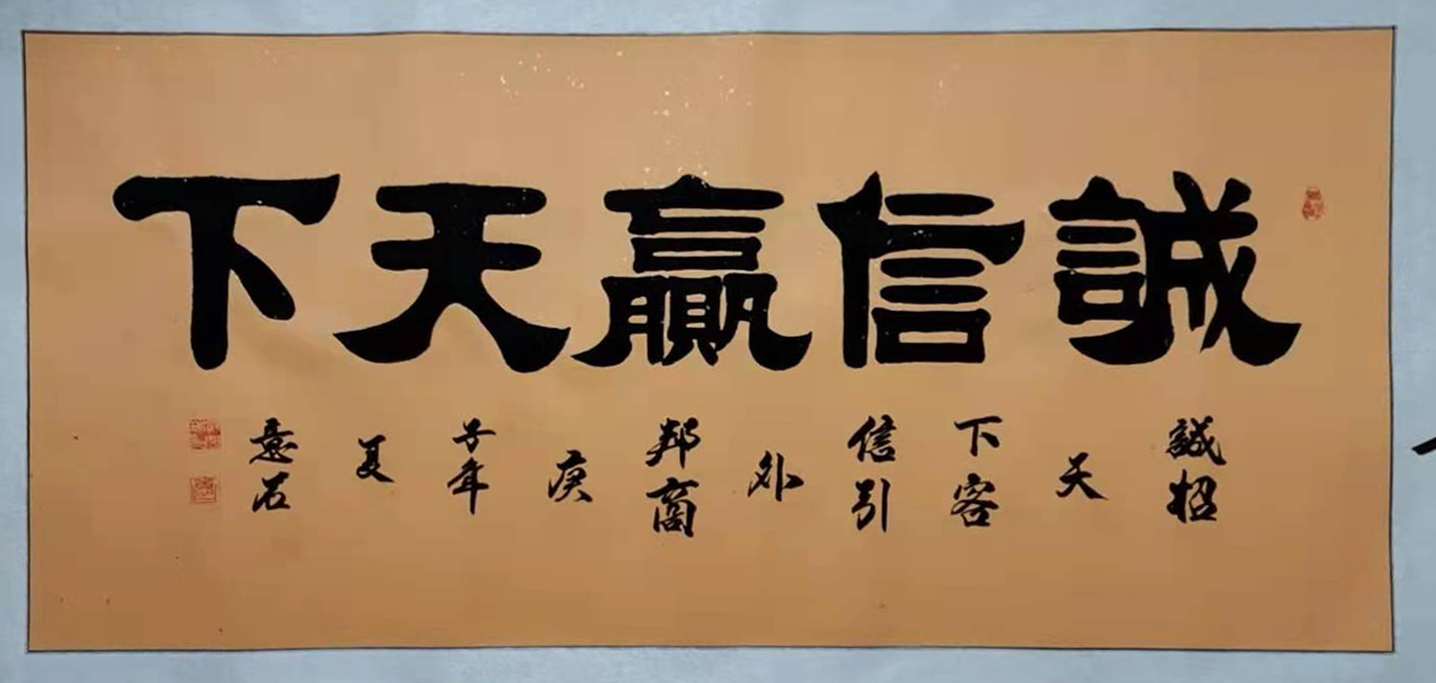 誠信贏天下
誠招
天
下客
信引
外
邦商
庚
子年
夏
意石